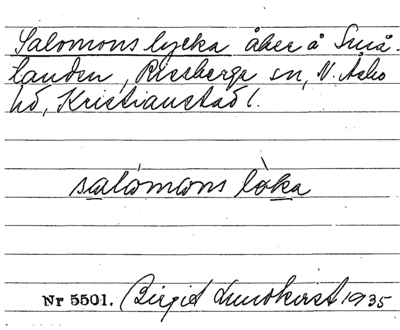 Salomons lycka åker å Små-
landen, Riseberga sn, N. Åsbo
hd, Kristianstad l.
salómons lò̀ka
Nr 5501. Birgit Lundkvist 1935